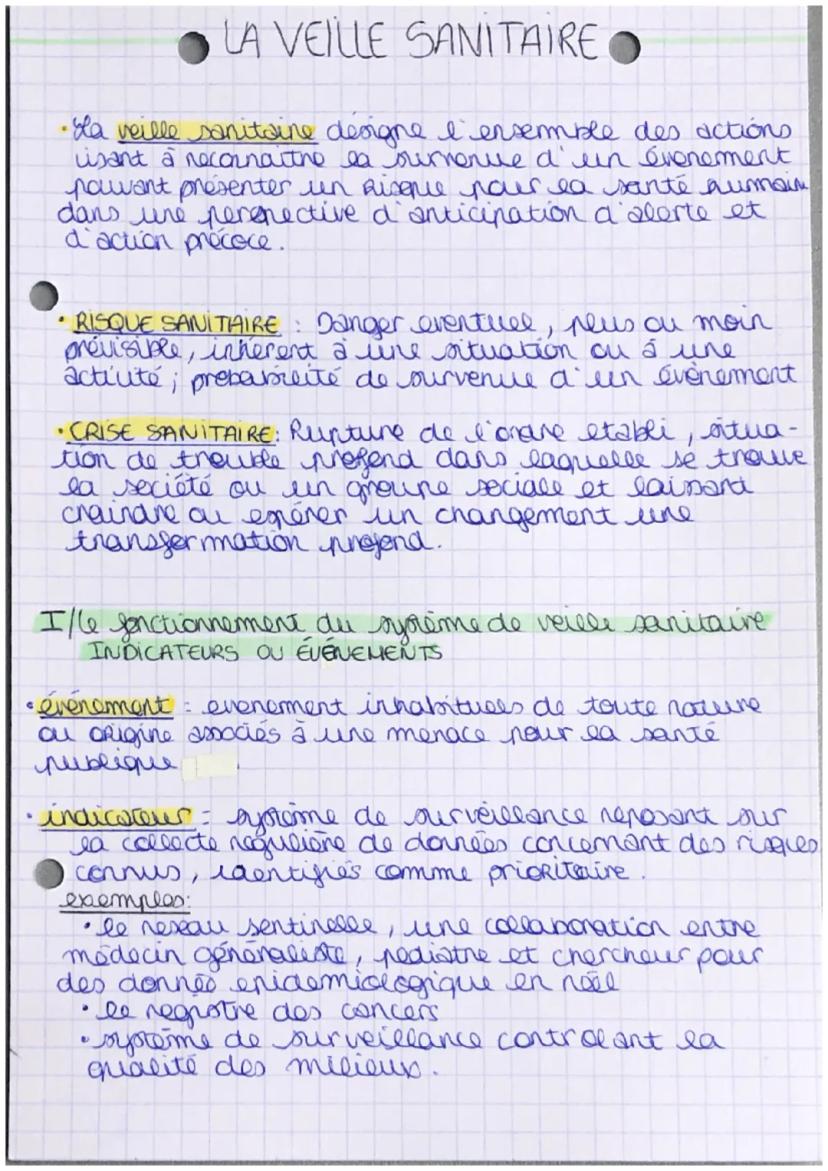 LA VEILLE SANITAIRE
• La veille sanitaire désigne l'ensemble des actions
visant à reconnaitre la survenue d'un évenement
pouvant présenter un Risque pour la santé humain
dans une perspective d'anticipation d'alerte et
d'action précoce.
• RISQUE SANITAIRE : Danger eventuel, plus ou moin
prévisible, inhérent à une situation ou à une
activité ; probabilité de survenue d'un évènement
• CRISE SANITAIRE : Rupture de l'ordre etabli, situa-
tion de trouble profond dans laquelle se trouve
la société ou un groupe sociale et laissant
craindre ou espérer un changement une
transformation profond.
I/Le fonctionnement du système de veille sanitaire
INDICATEURS OU ÉVÉNEMENTS
• événement : evenement inhabituels de toute nature
ou origine associés à une menace pour la santé
publique
• indicateur : système de surveillance reposant sur
la collecte régulière de données concernant des risques
connus, identifiés comme prioritaire.
exemples:
• le reseau sentinelle, une collaboration entre
médecin généraliste, pediatre et chercheur pour
des donnés epidemiologique en réel
• le registre des cancers
• système de surveillance controlant la
qualité des milieux.